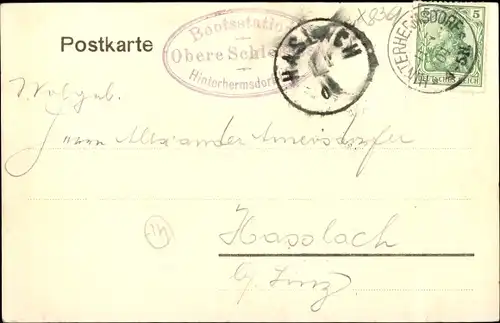 Postkarte
Bootsstation
Obere Schle
Hinterhermsdorf
HASLACH
HINTERHERMSDORF
5 5
DEUTSCHES REICH
Herrn Alexander Amersdorfer
Hasslach
b/ Linz